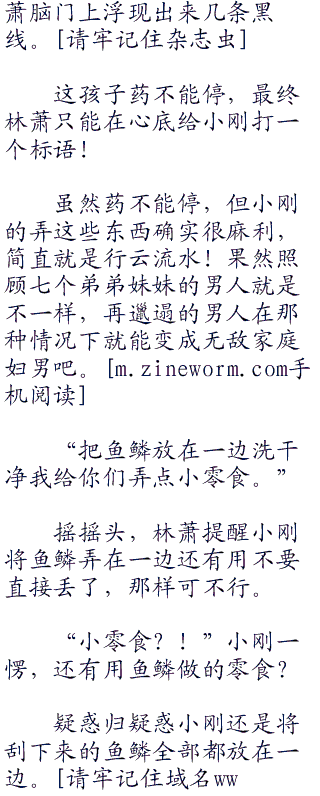 萧脑门上浮现出来几条黑
线。[请牢记住杂志虫]
这孩子药不能停，最终
林萧只能在心底给小刚打一
个标语！
虽然药不能停，但小刚
的弄这些东西确实很麻利，
简直就是行云流水！果然照
顾七个弟弟妹妹的男人就是
不一样，再邋遢的男人在那
种情况下就能变成无敌家庭
妇男吧。[m.zineworm.com手
机阅读]
“把鱼鳞放在一边洗干
净我给你们弄点小零食。”
摇摇头，林萧提醒小刚
将鱼鳞弄在一边还有用不要
直接丢了，那样可不行。
“小零食？！”小刚一
愣，还有用鱼鳞做的零食？
疑惑归疑惑小刚还是将
刮下来的鱼鳞全部都放在一
边。[请牢记住域名ww